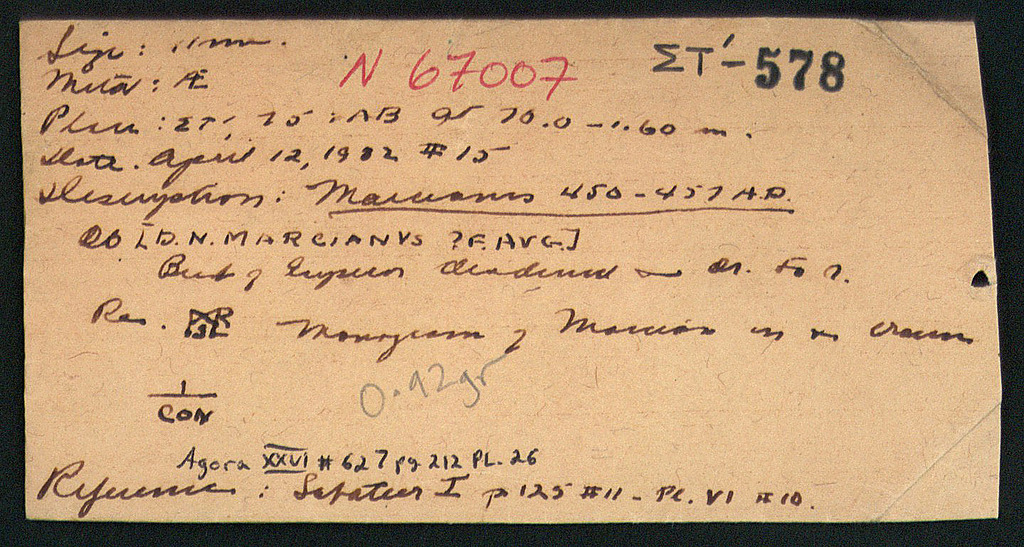 Size: 11mm.
N 67007
ΣΤ'-578
Metal: Æ
Place: ΣΤ', 75:ΛΒ at 70.0-1.60 m.
Date. April 12, 1932 #15
Description: Marcianus 450-457 A.D.
Ob [D.N. MARCIANVS ?F. AVG.]
Bust of Emperor diademed dr. to r.
Rev. Monogram of Marcian in a crown
1
CON
0.92gr
Agora XXVI #627 pg 212 PL. 26
Reference: Sabatier I p 125 #11 - Pl. VI #10.